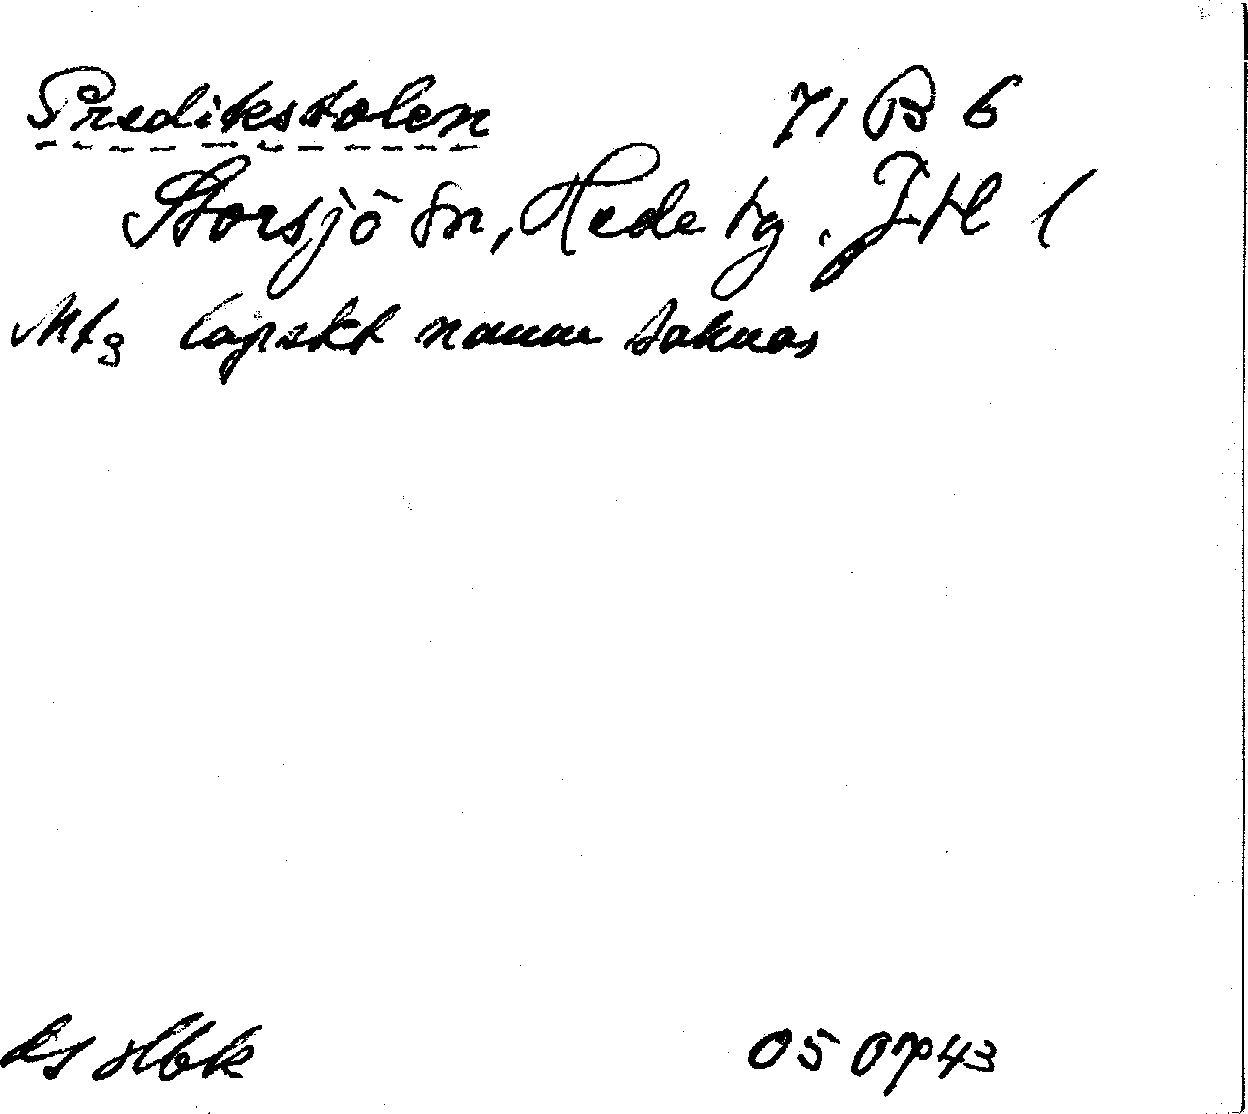 Predikstolen 71 B 6
Storsjö sn, Hede tg. Jtl l
Mtg lapskt namn saknas
05 0743